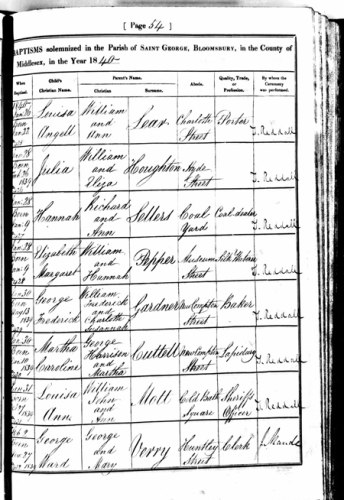 [ Page 54 ]
BAPTISMS solemnized in the Parish of SAINT GEORGE, BLOOMSBURY, in the County of
Middlesex, in the Year 1840
When Baptized. Child's Christian Name. Parent's Name. Christian Surname. Abode. Quality, Trade, or Profession. By whom the Ceremony was performed.
Louisa Angell William and Ann Charlotte Street Porter T. Reddall
Julia William and Eliza Houghton Hyde Street T. Reddall
Hannah Richard and Ann Sellers Coal Yard Coal-dealer T. Reddall
Elizabeth Margaret William and Hannah Pepper Museum Street T. Reddall
George Frederick William Frederick and Charlotte Susannah Gardner New Compton Street Baker T. Reddall
Martha Caroline George Harrison and Martha Cuttell New Compton Street Lapidary T. Reddall
Louisa Ann William John and Ann Mott Cold Bath Square Sheriff's Officer T. Reddall
George Ward George and Mary Verry Huntley Street Clerk J. Mande